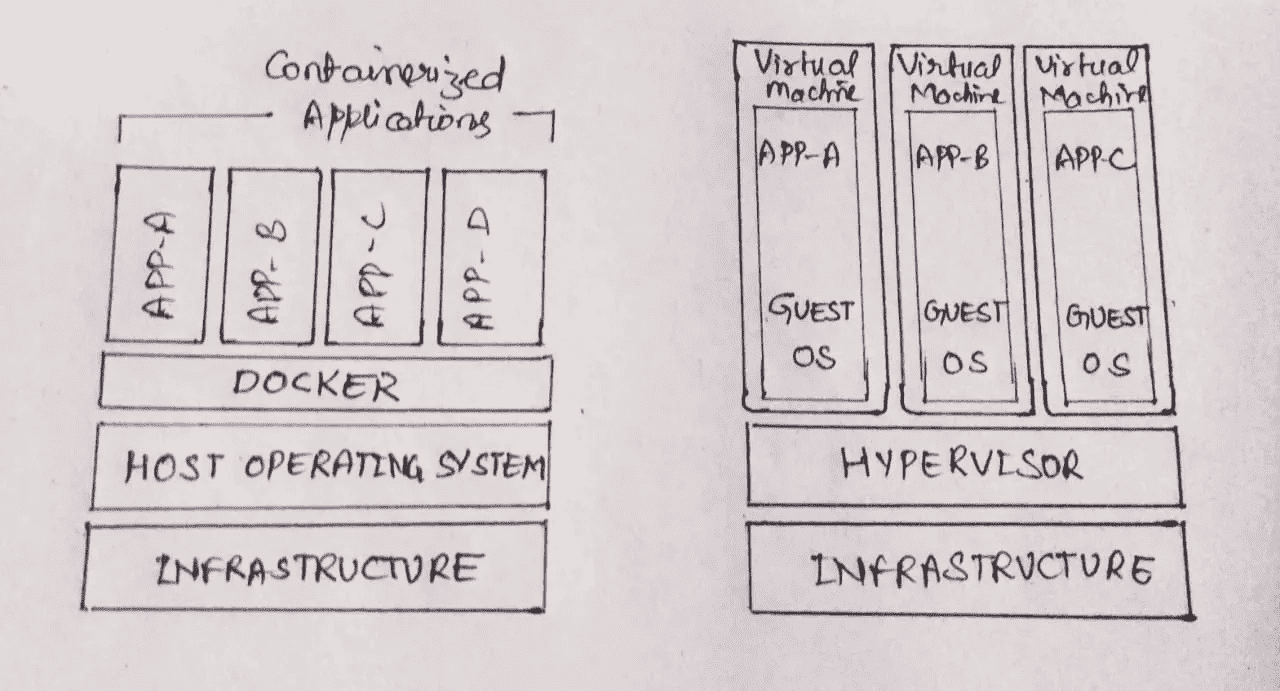 Containerized
Applications
APP-A
APP-B
APP-C
APP-D
DOCKER
HOST OPERATING SYSTEM
INFRASTRUCTURE
Virtual
Machine
APP-A
GUEST
OS
Virtual
Machine
APP-B
GUEST
OS
Virtual
Machine
APP-C
GUEST
OS
HYPERVISOR
INFRASTRUCTURE